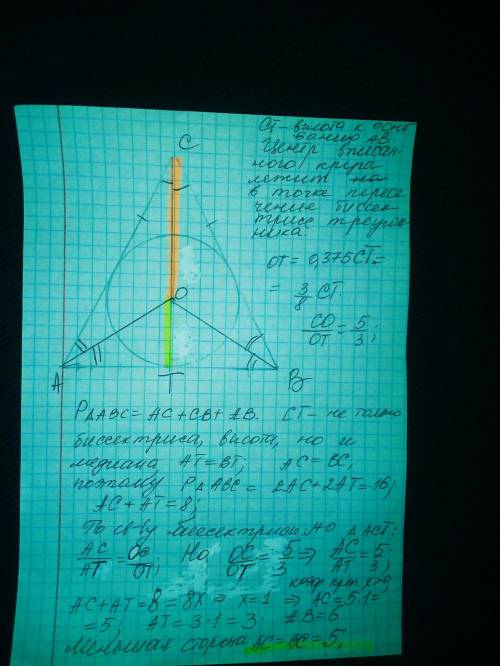 C
CT - высота к осно
ванию AB
Центр вписан-
ного круга
лежит на
в точке пересе
чение биссек-
трисс треуголь-
ника.
OT = 0,375CT =
= 3/8 CT.
CO/OT = 5/3;
O
A
T
B
P△ABC = AC + CB + AB. CT - не только
биссектриса, высота, но и
медиана, AT = BT, AC = BC,
поэтому P△ABC = 2AC + 2AT = 16;
AC + AT = 8;
По св-ву биссектрисы AO △ACT:
AC/AT = OC/OT; Но OC/OT = 5/3 ⇒ AC/AT = 5/3,
AC + AT = 8 = 8x ⇒ x = 1 ⇒ AC = 5·1 =
= 5; AT = 3·1 = 3. AB = 6
Меньшая сторона AC = BC = 5,